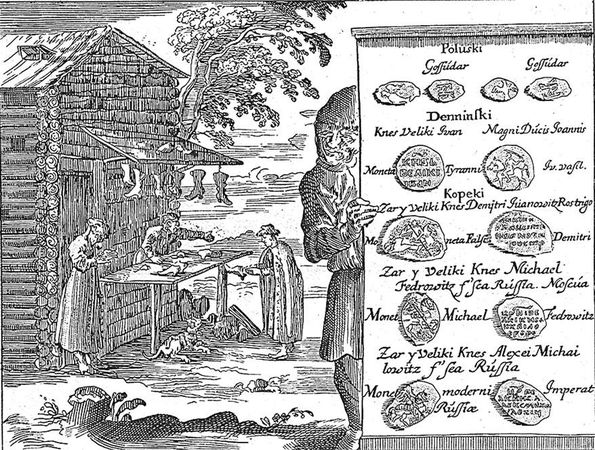 Poluski
Gossúdar Gossúdar
Denninski
Knes Veliki Ivan Magni Dúcis Ioannis
Moneta Tyranni Iv. vasil.
Kopeki
Zar y Veliki Knes Demitri Iuanowitz Rostrigo
Mo neta Falsc Demitri
Zar y Veliki Knes Michael
Fedrowitz f'sea Rússia Moscúa
Monet Michael Fedrowitz
Zar y Veliki Knes Alexei Michai
lowitz f'sea Rússia
Monet moderni Imperat
Rússiæ